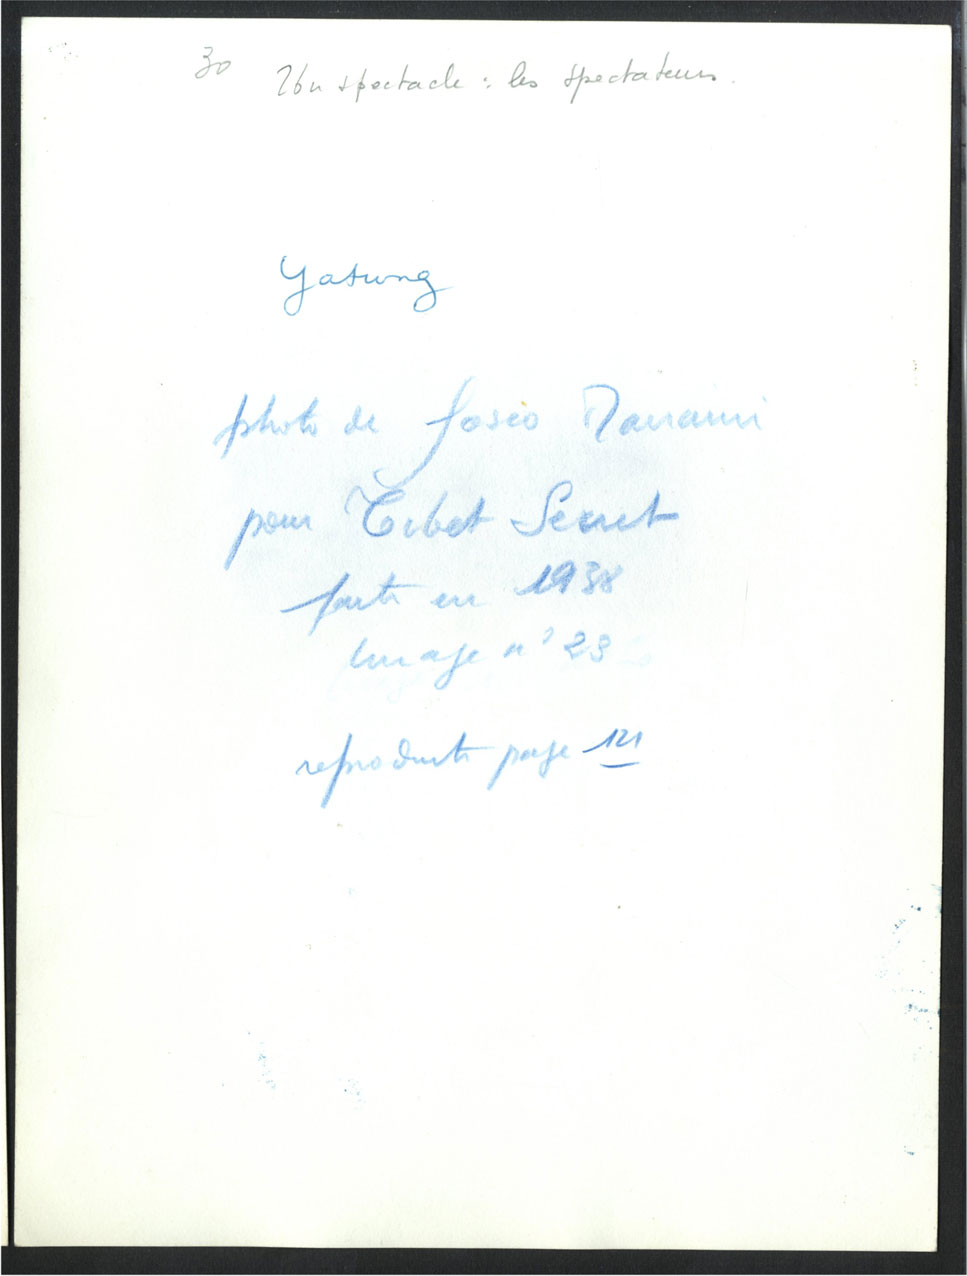 30 Un spectacle : les spectateurs.
Yatung
photo de fosco Maraini
pour Tibet Secret
faite en 1938
Image n° 23
reproduite page 121